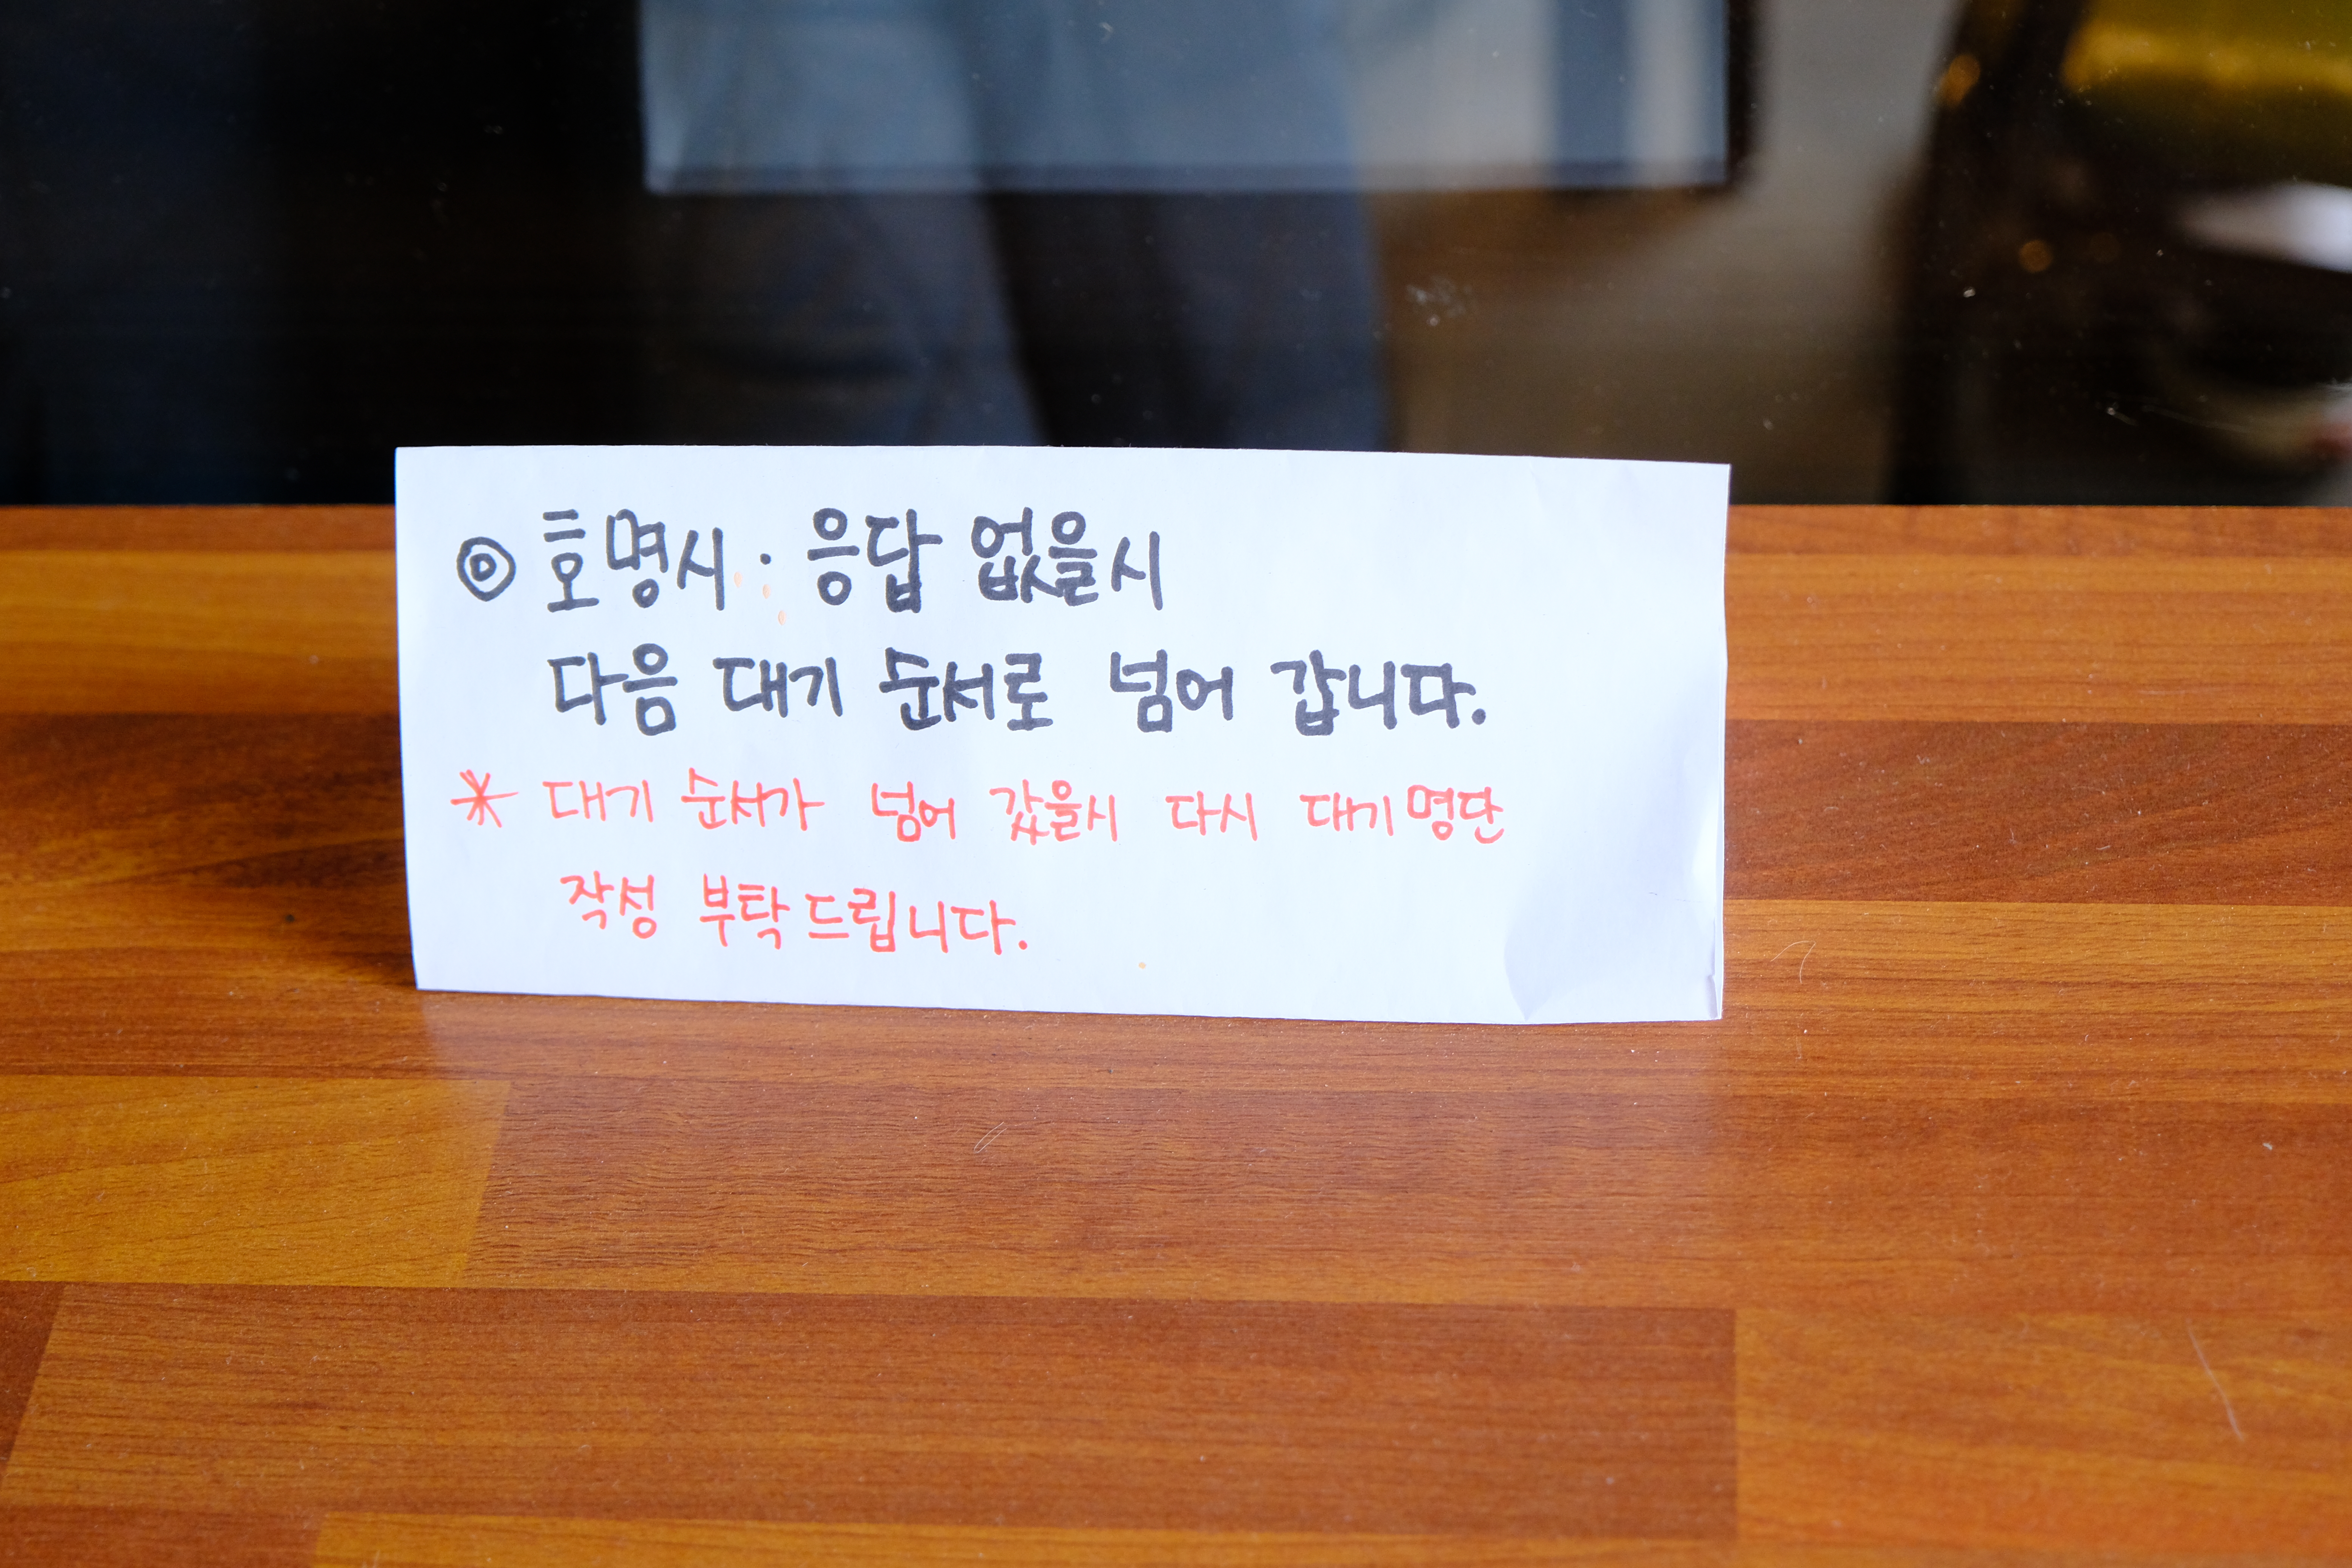 ◎ 호명시 · 응답 없을시
다음 대기 순서로 넘어 갑니다.
* 대기 순서가 넘어 갔을시 다시 대기명단
작성 부탁드립니다.